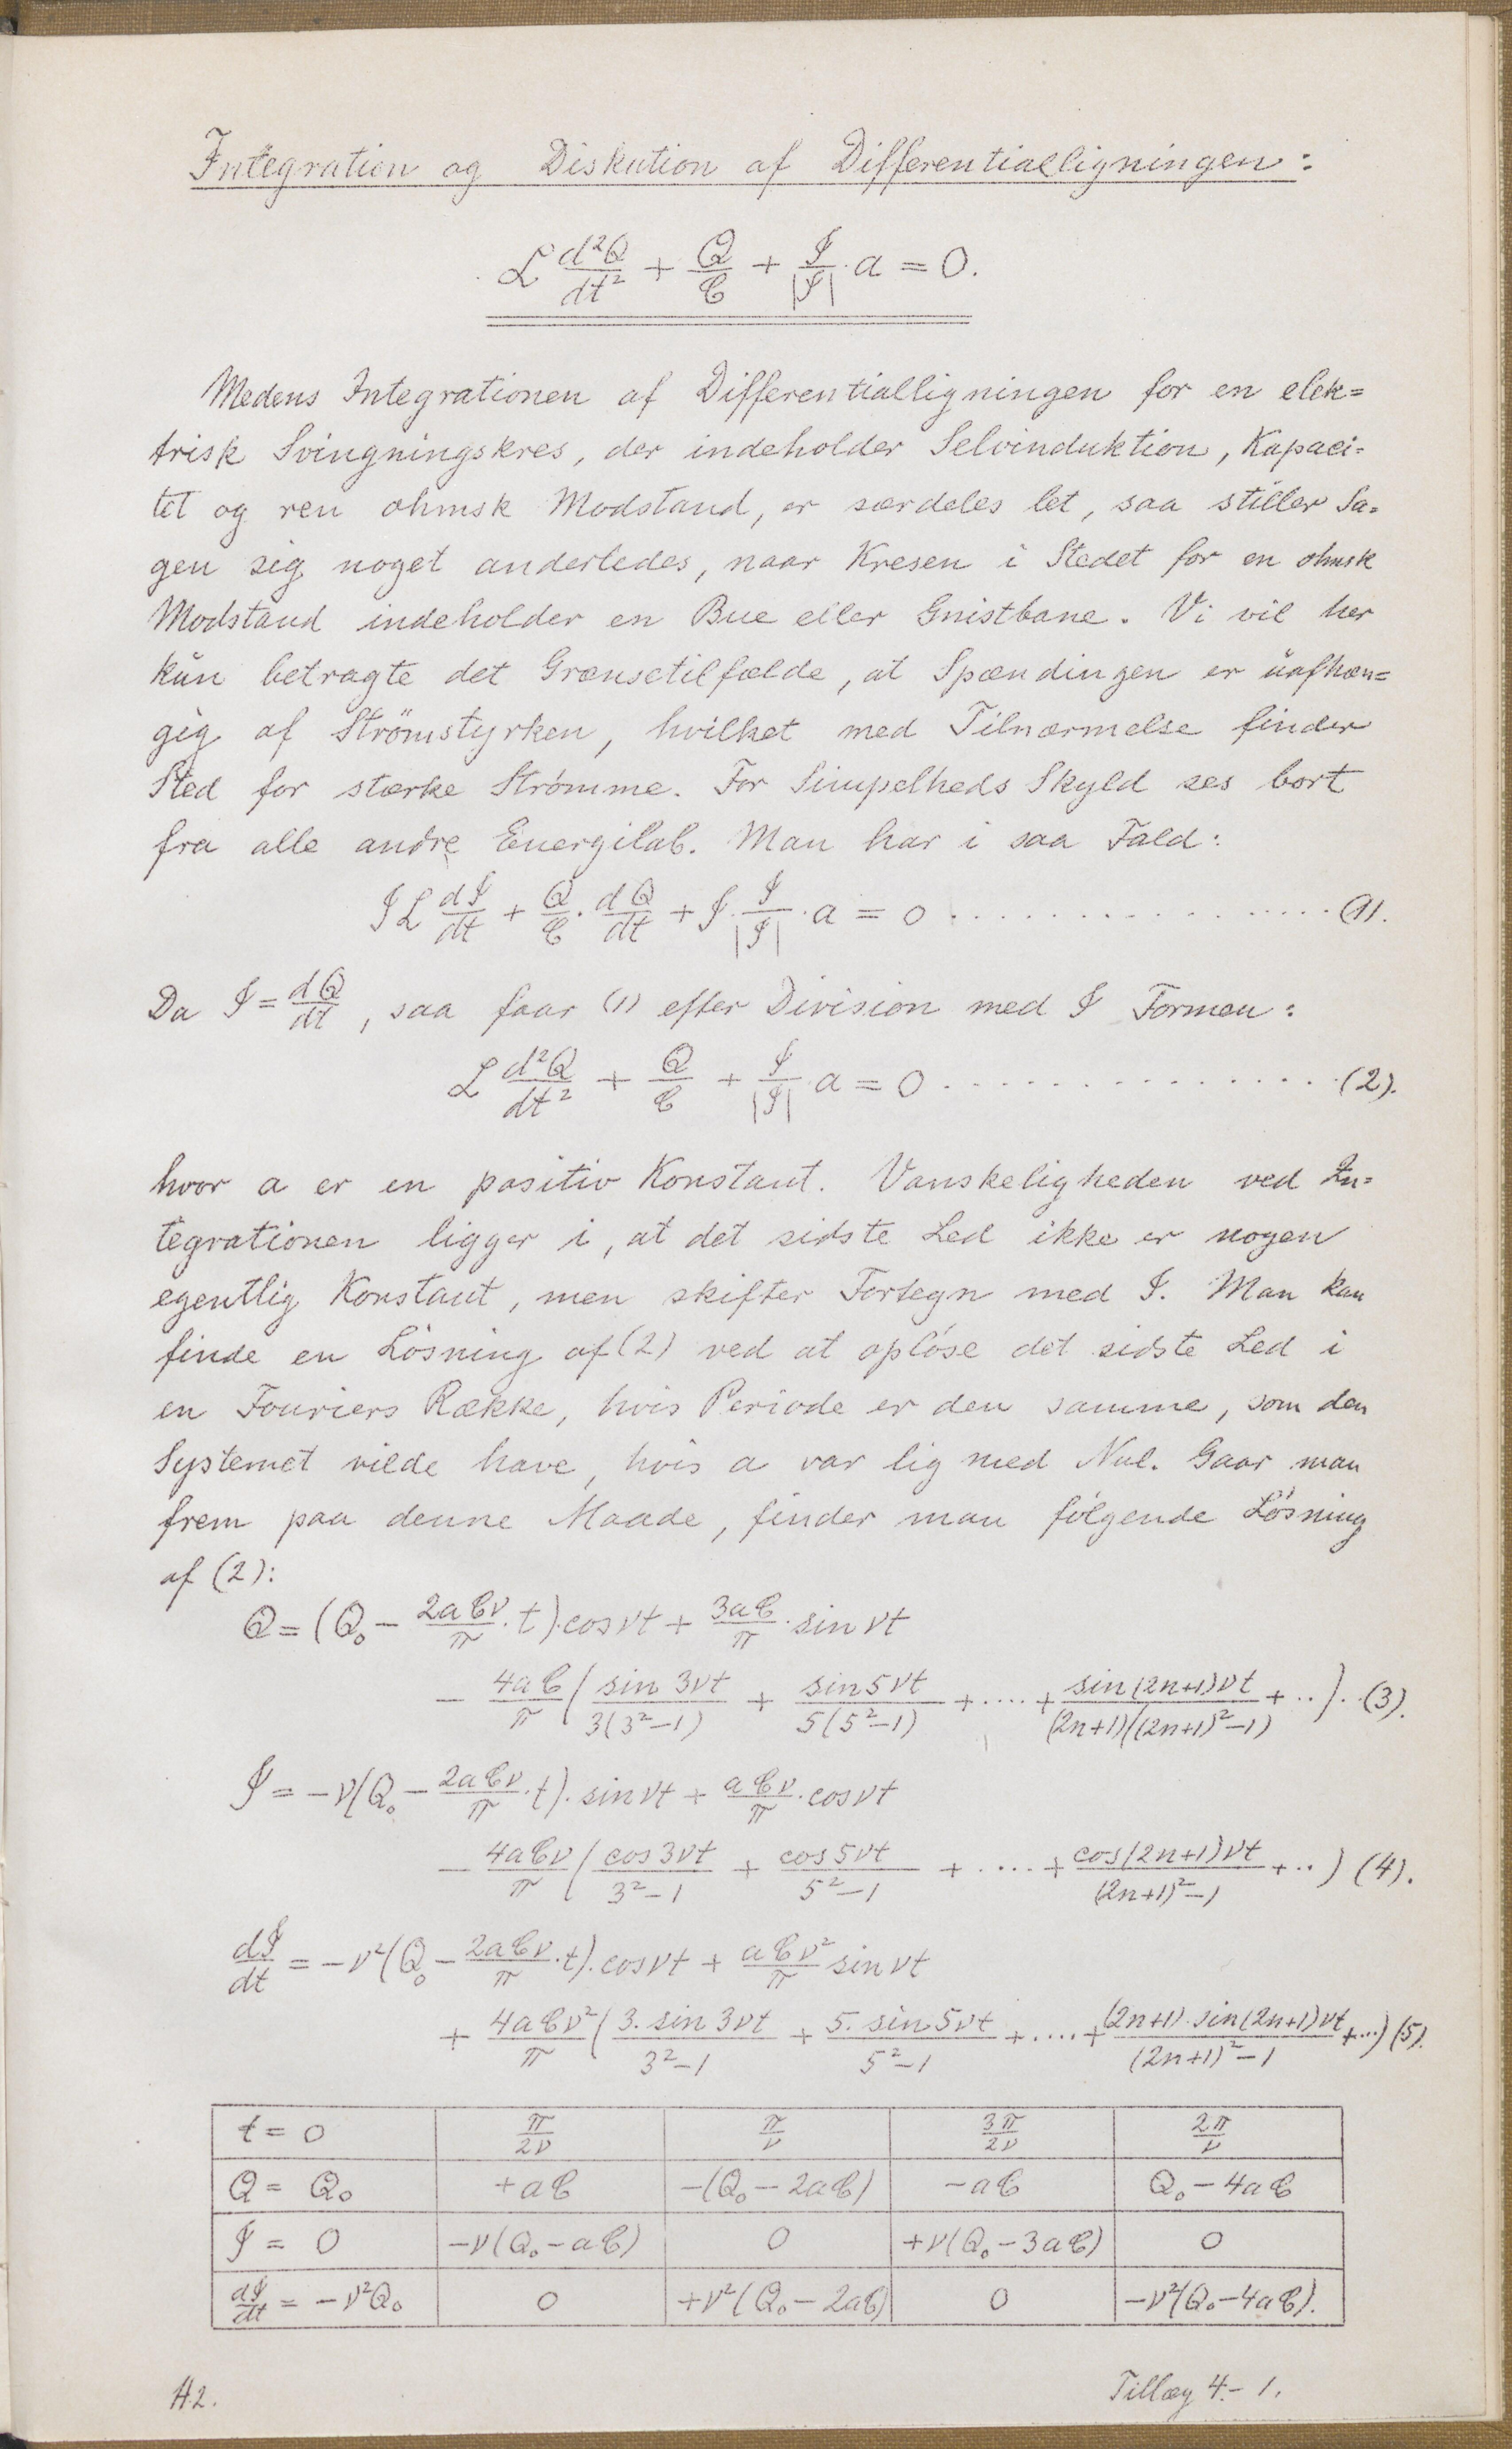 Integration og Diskution af Differentialligningen:
L d²Q/dt² + Q/C + I/|I| · a = 0.
Medens Integrationen af Differentialligningen for en elek=
trisk Svingningskres, der indeholder Selvinduktion, Kapaci=
tet og ren ohmsk Modstand, er særdeles let, saa stiller Sa=
gen sig noget anderledes, naar Kresen i Stedet for en ohmsk
Modstand indeholder en Bue eller Gnistbane. Vi vil her
kŭn betragte det Grænsetilfælde, at Spændingen er ŭafhæn=
gig af Strömstyrken, hvilket med Tilnærmelse finder
Sted for stærke Strömme. For Simpelheds Skyld ses bort
fra alle andre Energitab. Man har i saa Fald:
I L dI/dt + Q/C · dQ/dt + I · I/|I| · a = 0 . . . . . . . . . . . . . . . . (1).
Da I = dQ/dt, saa faar (1) efter Division med I Formen:
L d²Q/dt² + Q/C + I/|I| · a = 0 . . . . . . . . . . . . . . . . (2).
hvor a er en positiv Konstant. Vanskeligheden ved In=
tegrationen ligger i, at det sidste Led ikke er nogen
egentlig Konstant, men skifter Fortegn med I. Man kan
finde en Lösning af (2) ved at oplöse det sidste Led i
en Fouriers Række, hvis Periode er den samme, som den
Systemet vilde have, hvis a var lig med Nul. Gaar man
frem paa denne Maade, finder man fölgende Lösning
af (2):
Q = (Q₀ − 2aCν/π · t) · cos νt + 3aC/π · sin νt
− 4aC/π ( sin 3νt/3(3²−1) + sin 5νt/5(5²−1) + . . . . + sin (2n+1)νt/(2n+1)((2n+1)²−1) + . . ) . (3).
I = −ν(Q₀ − 2aCν/π · t) · sin νt + aCν/π · cos νt
− 4aCν/π ( cos 3νt/3²−1 + cos 5νt/5²−1 + . . . . + cos (2n+1)νt/(2n+1)²−1 + . . ) (4).
dI/dt = −ν²(Q₀ − 2aCν/π · t) · cos νt + aCν²/π sin νt
+ 4aCν²/π ( 3. sin 3νt/3²−1 + 5. sin 5νt/5²−1 + . . . . + (2n+1) · sin (2n+1)νt/(2n+1)²−1 + ... ) (5).
t = 0 π/2ν π/ν 3π/2ν 2π/ν
Q = Q₀ +aC −(Q₀ − 2aC) −aC Q₀ − 4aC
I = 0 −ν(Q₀ − aC) 0 +ν(Q₀ − 3aC) 0
dI/dt = −ν²Q₀ 0 +ν²(Q₀ − 2aC) 0 −ν²(Q₀ − 4aC).
H2. Tillæg 4.- 1.